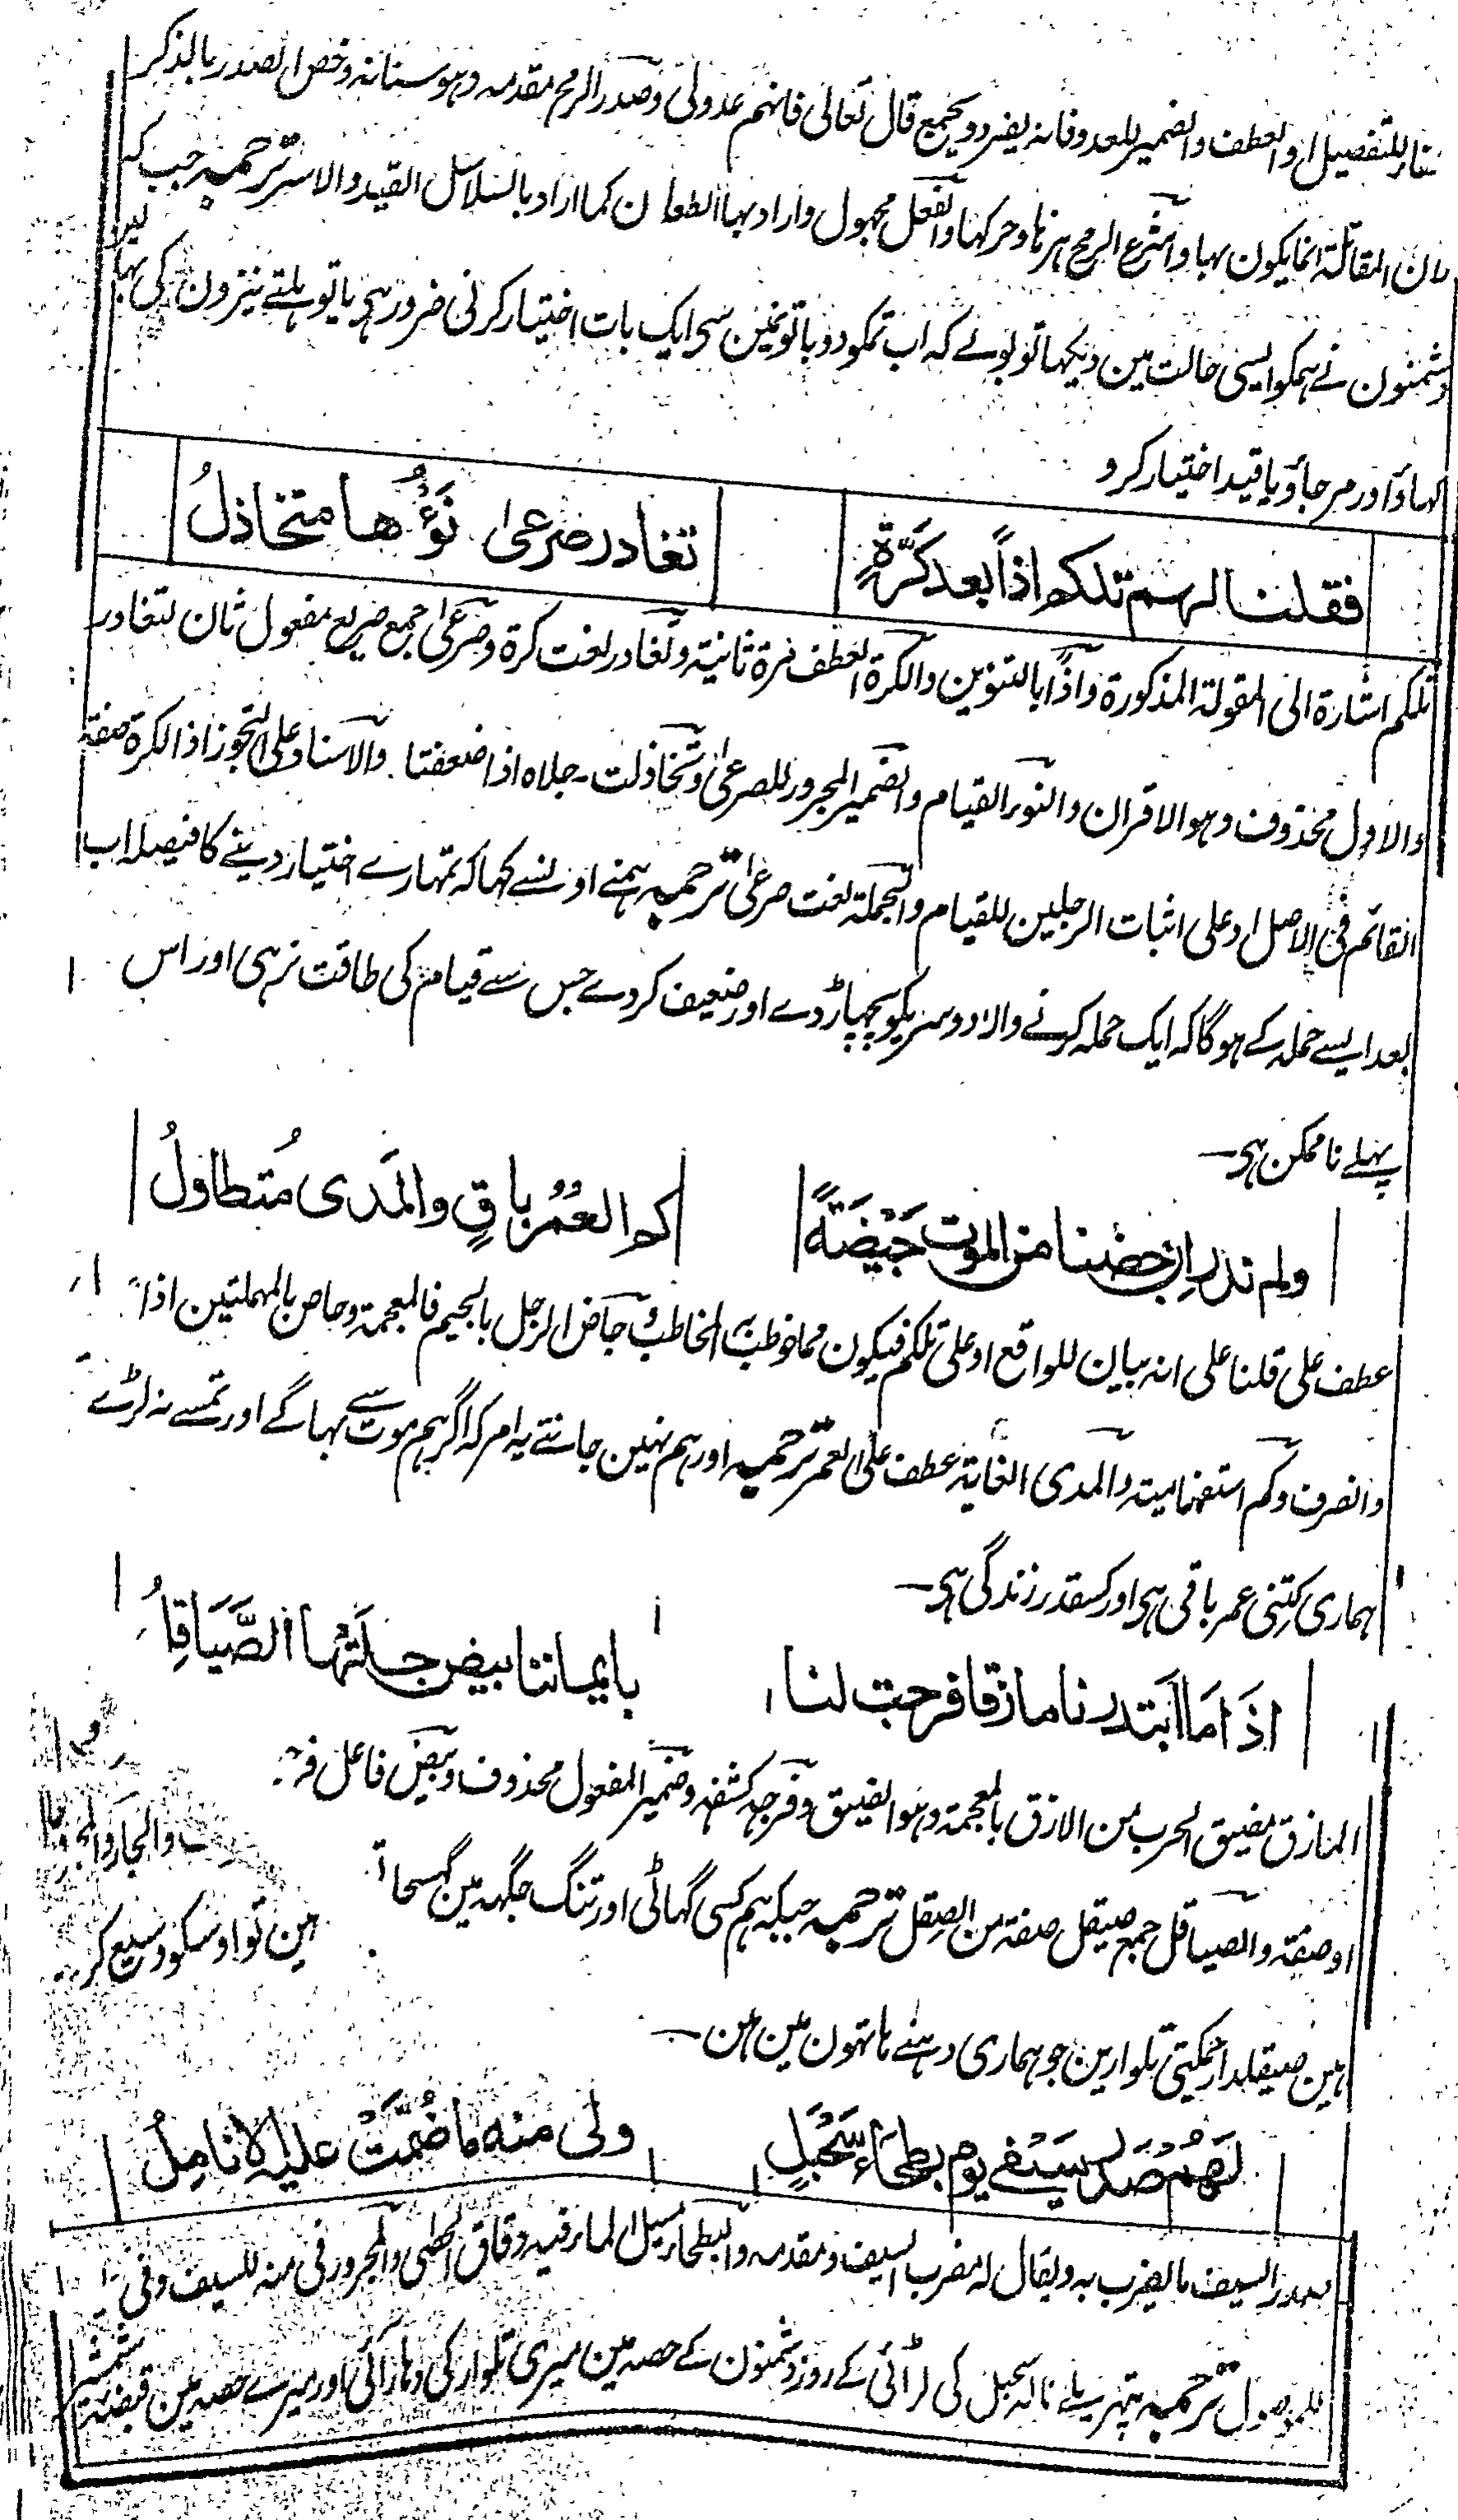 للتفصيل او العطف والضمير للعدو فانه يفرد ويجمع قال تعالى فانهم عدو لى وصدر الرمح مقدمه وهو سنانه وخص الصدر بالذكر
لان المقاتلة انما يكون بها واشرع الرمح هزها وحركها والفعل مجهول واراد بها الطعان كما اراد بالسلاسل القيد والاسر ترحمبہ جب کہ
دشمنون نے ہمکو ایسی حالت مین دیکھا تو بولے کہ اب تمکو دو باتونمین سی ایک بات اختیار کرنی ضرور ہی یا تو ہلتے نیزون کی بہالین
کہاؤ اور مرجاؤ یا قید اختیار کرو
فقلنا لهم تلكم اذاً بعد كَرَّةٍ تغادر صرعى نَوْءُها متخاذلُ
تلکم اشارة الى المقولة المذكورة واذاً بالتنوين والكرة العطف مرة ثانية وتغادر نعت كرة وصرعى جمع صريع مفعول ثان لتغادر
والاول محذوف وهو الاقران والنوء القيام والضمير المجرور للصرعى وتخاذلت رجلاه اذا ضعفتا والاسناد على التجوز اذ الكرة صفة
القائم فى الاصل او على اثبات الرجلين للقيام والجملة نعت صرعى ترحمبہ ہمنے اونسے کہا کہ تمہارے اختیار دینے کا فیصلہ اب
بعد ایسے حملہ کے ہوگا کہ ایک حملہ کرنے والا دوسریکو پچھاڑ دے اور ضعیف کردے جس سے قیام کی طاقت نرہی اور اس
پہلے ناممکن ہی۔
ولم ندر ان جضنا من الموت جَيْضَةً كم العُمْرُ باقٍ والمَدى مُتطاولُ
عطف على قلنا على انه بيان للواقع او على تلكم فيكون مما خوطب به المخاطب وجاض الرجل بالجيم فالمعجمة وحاص بالمهملتين اذا
وانصرف وكم استفهامية والمدى الغاية عطف على العمر ترحمبہ اور ہم نہین جانتے یہ امر کہ اگر ہم موت سے بہاگے اور تمسے نہ لڑے
ہماری کتنی عمر باقی ہی اور کسقدر زندگی ہی۔
اذا ما ابتدرنا مازقا فرجت لنا بايماننا بيض جلتها الصَّيَاقِلُ
المازق مضيق الحرب من الازق بالمعجمة وهو الضيق وفرجه كشفه وضمير المفعول محذوف وبيض فاعل والجار والمجرور
او صفة والصياقل جمع صيقل صفة من الصقل ترحمبہ جبکہ ہم کسی گہاٹی اور تنگ جگہہ مین گہس جاتے ہین تو اوسکو وسیع کر
ہین صیقلدار چمکتی تلوارین جو ہماری دہنے ہاتہون مین ہین۔
لَهُم صَدر سَيْفى يوم بطحاء سَحْبَلٍ ولى منه ما ضُمَّتْ عليه الانامِلُ
صدر السيف ما يضرب به ويقال له مضرب السيف ومقدمه والبطحاء مسيل الماء فيه دقاق الحصى والمجرور فى منه للسيف وفى
للموصول ترحمبہ پتہریلے نالہ سحبل کی لڑائی کے روز دشمنون کے حصہ مین میری تلوار کی دہار آئی اور میرے حصہ مین قبضہ شمشیر